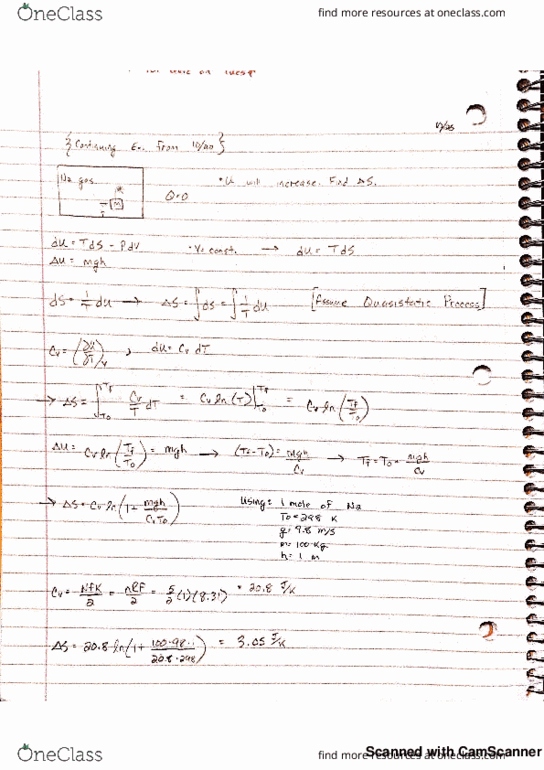 OneClass
find more resources at oneclass.com
{Continuing Ex. from 10/20}
N₂ gas
m
Q=0
• U will increase. Find ΔS.
dU = TdS - PdV • V= const. → dU = TdS
ΔU = mgh
dS = 1/T dU → ΔS = ∫dS = ∫1/T dU [Assume Quasistatic Process]
Cv = (∂U/∂T)v , dU = Cv dT
→ ΔS = ∫To^Tf Cv/T dT = Cv ln(T)|To^Tf = Cv ln(Tf/To)
ΔU = Cv ln(Tf/To) = mgh → (Tf-To) = mgh/Cv → Tf = To + mgh/Cv
→ ΔS = Cv ln(1 + mgh/CvTo)
Using: 1 mole of N₂
To = 298 K
g = 9.8 m/s
m = 100 kg
h = 1 m
Cv = Nfk/2 = nRf/2 = 5/2 (1)(8.31) = 20.8 J/K
ΔS = 20.8 ln(1 + 100·9.8·1/20.8·298) = 3.05 J/K
OneClass
find more resources at oneclass.com
Scanned with CamScanner